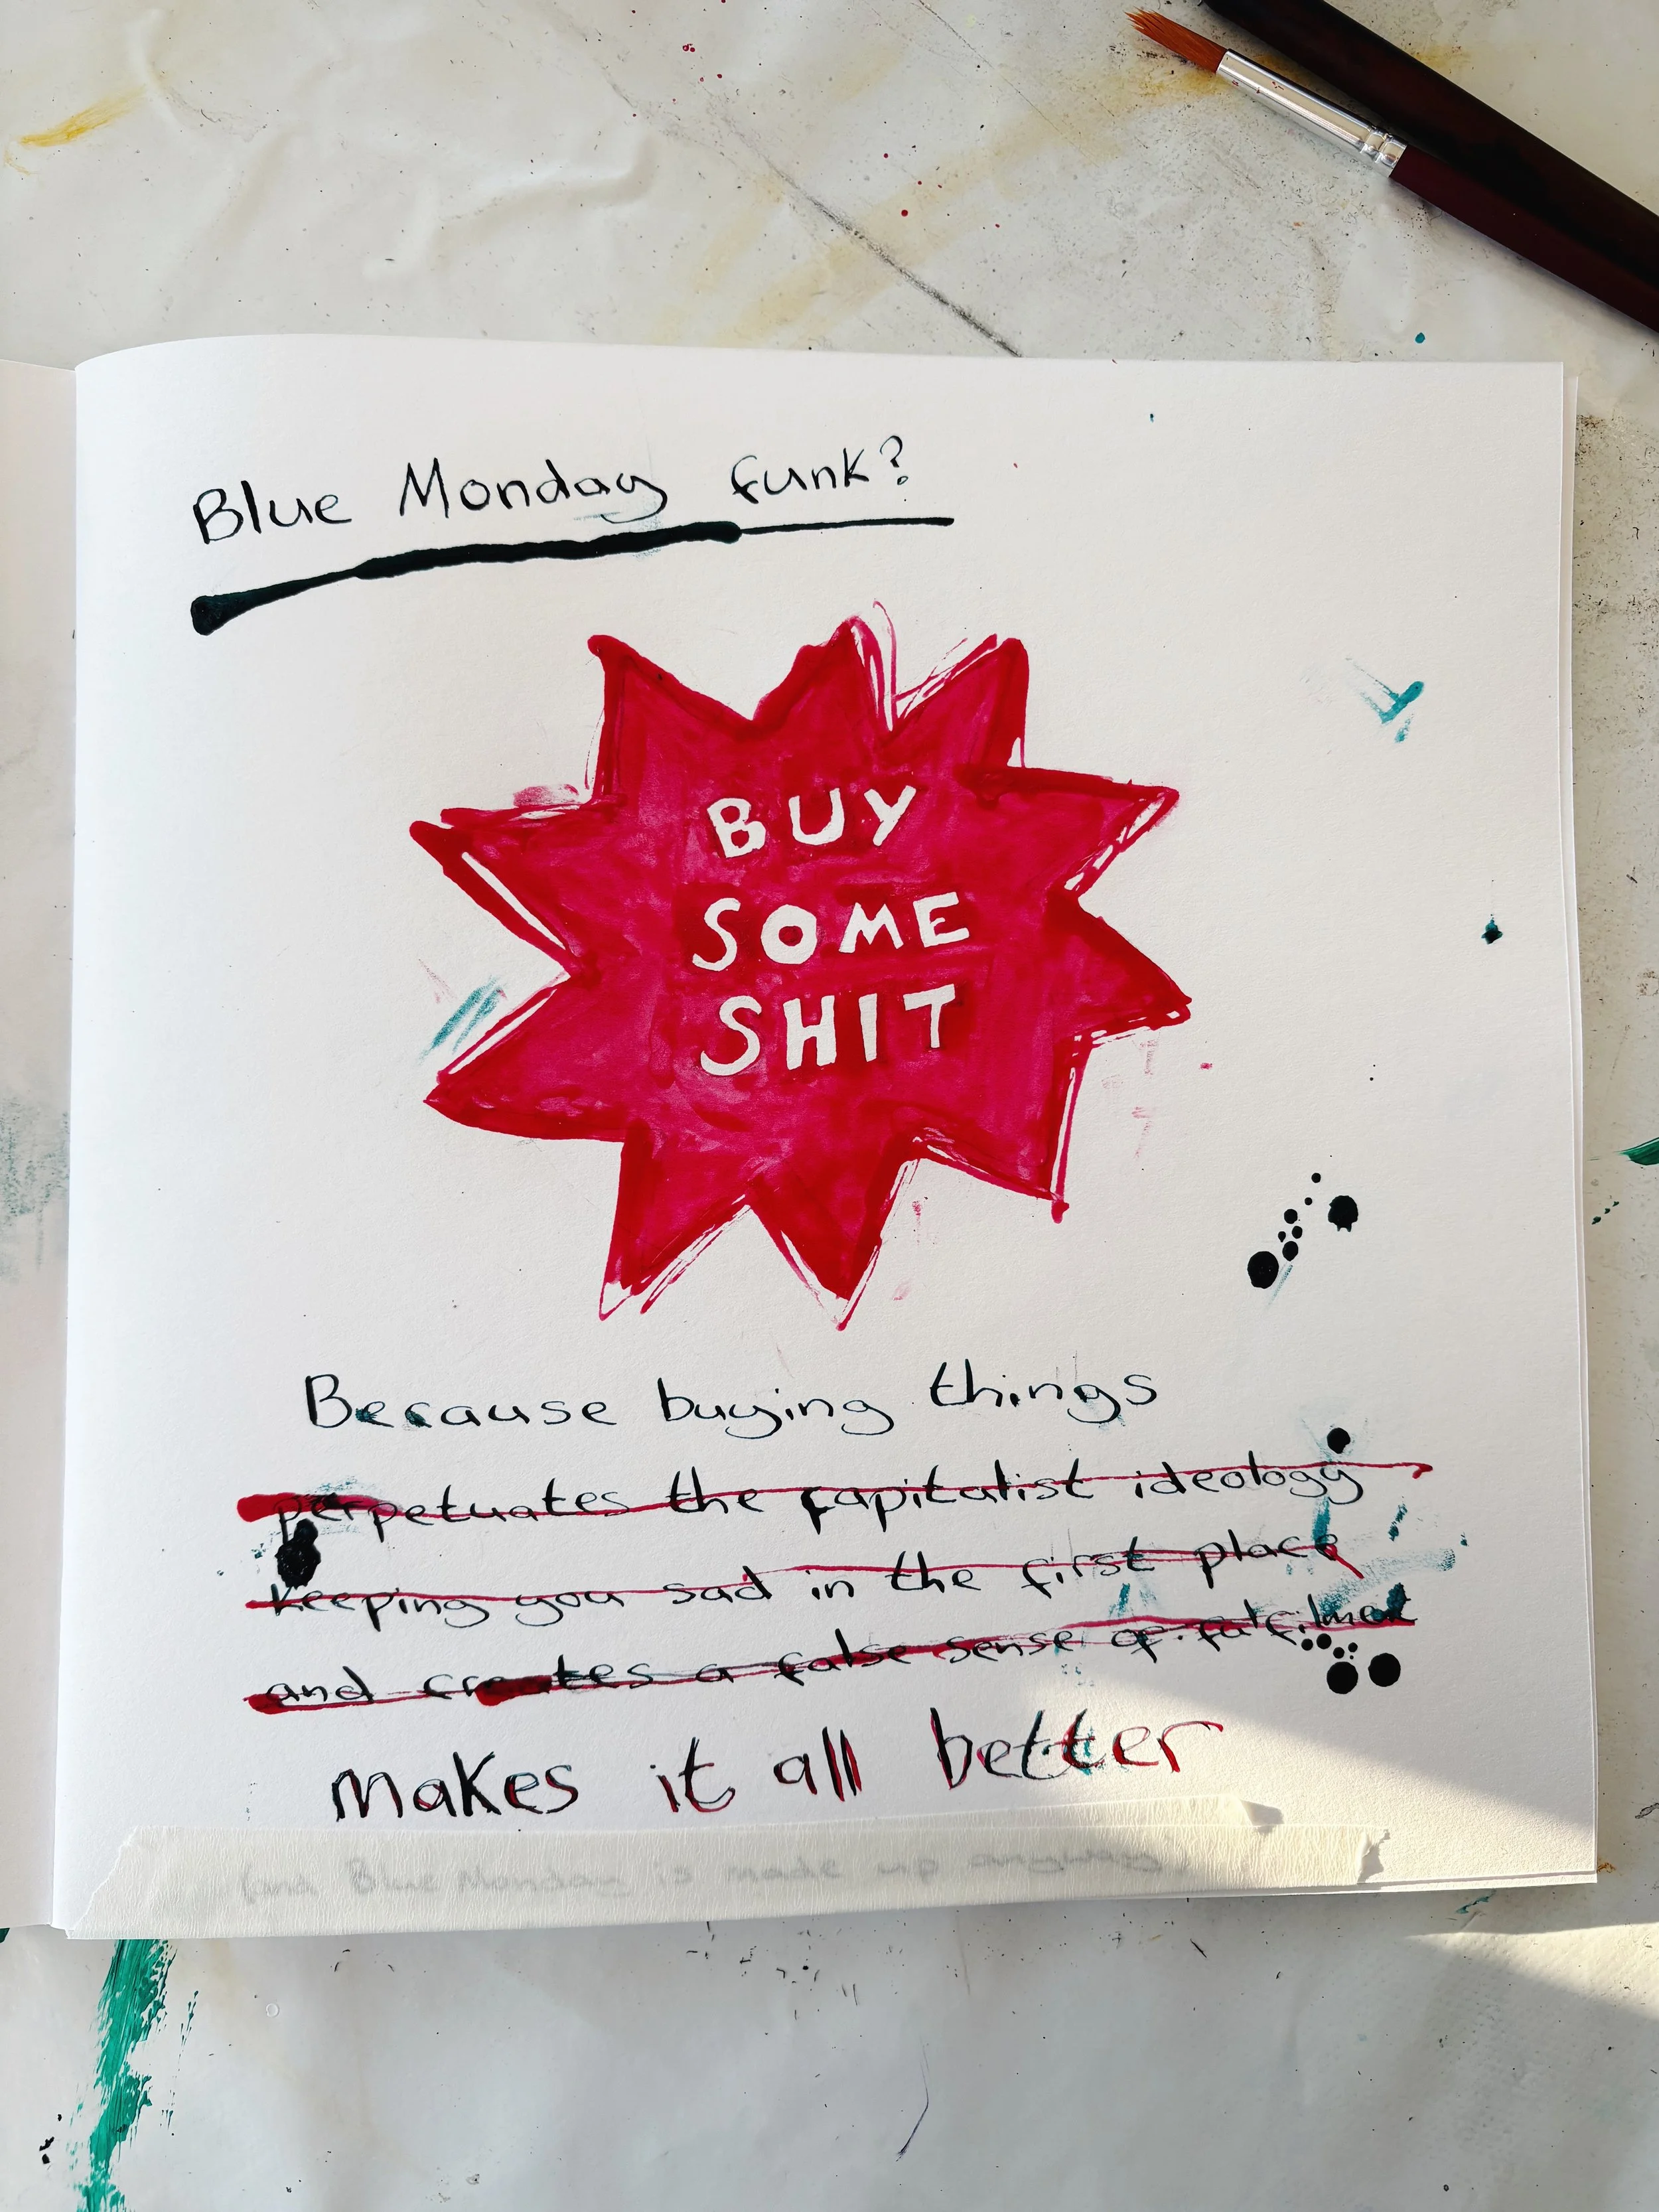 Blue Monday funk?
BUY
SOME
SHIT
Because buying things
perpetuates the capitalist ideology
keeping you sad in the first place
and creates a false sense of fulfilment
makes it all better
(and Blue Monday is made up anyway)